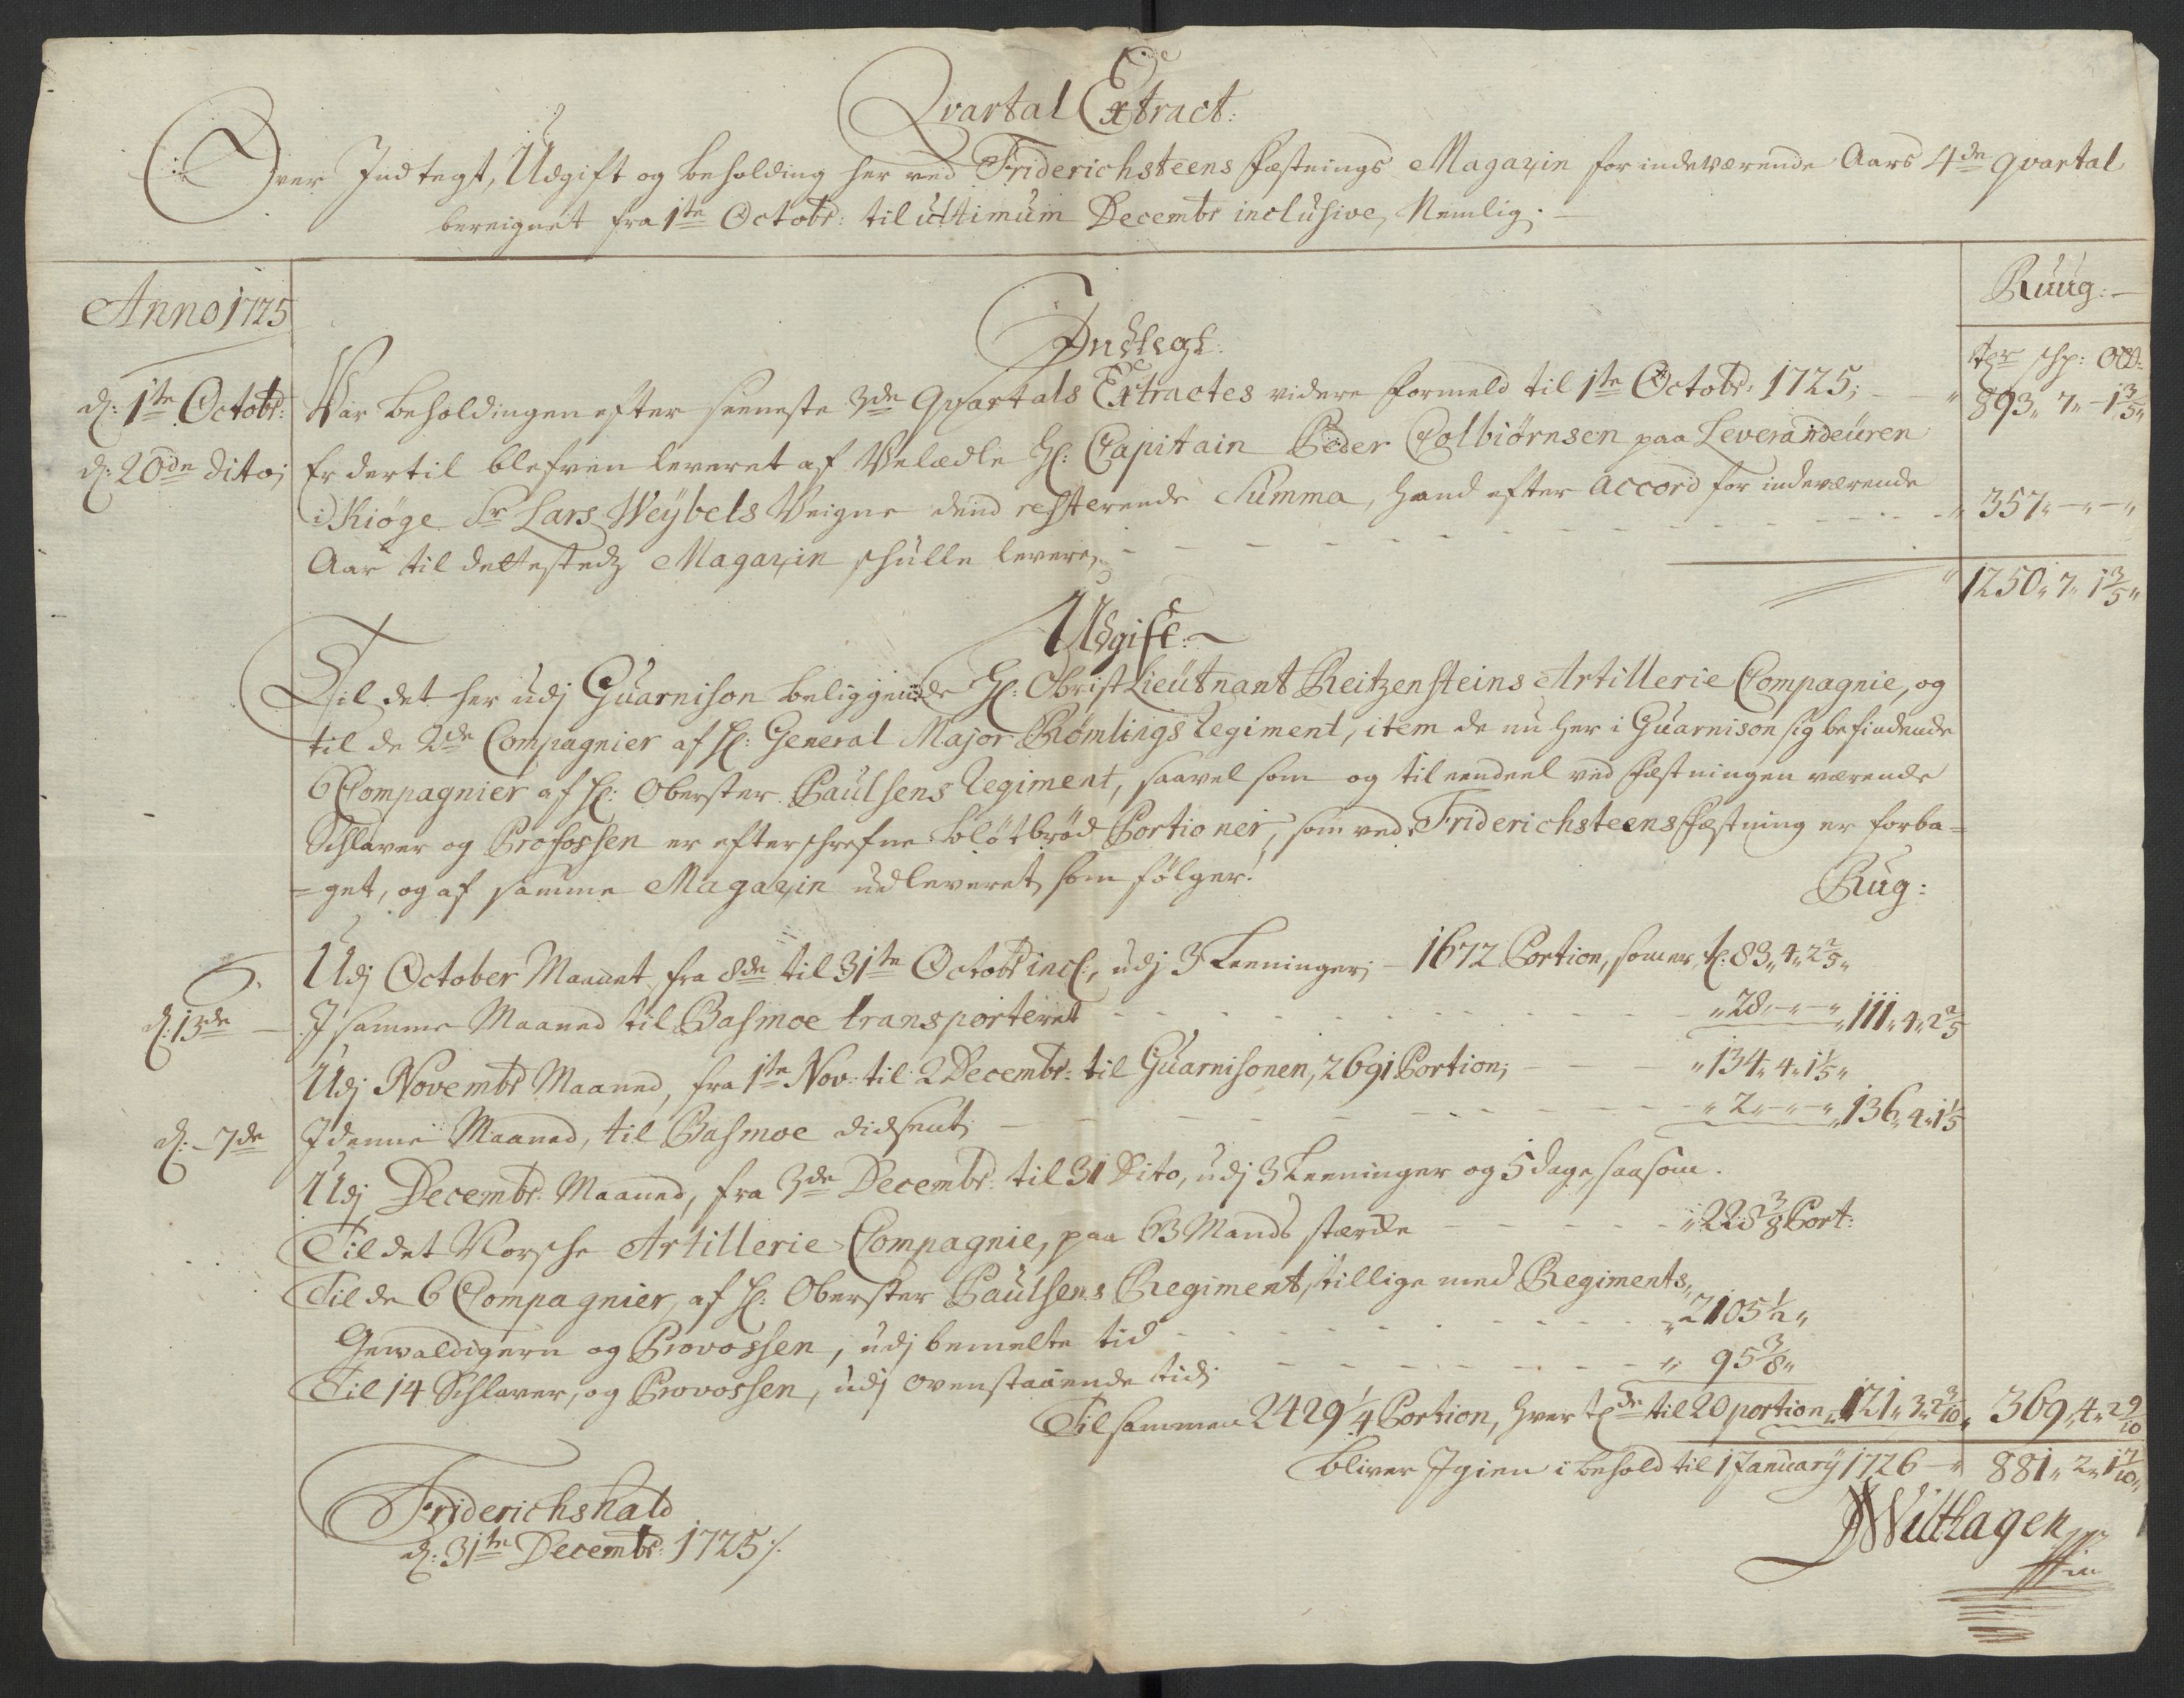 Qvartal Extract:
Over Indtegt, Udgift og beholding her ved Friderichsteens Fæstnings Magazin for indeværende Aars 4de qvartal
bereignet fra 1te Octobr: til ultimum Decembr inclusive, Nemlig:
Anno 1725
Ruug:
Indtegt:
tdr schp: Otl:
d: 1te Octobr: Var beholdingen efter seeneste 3de Qvartals Extractes videre formeld til 1te Octobr: 1725; - - " 893" 7" - 1 3/5"
d: 20de dito; Er dertil blefven leveret af Velædle Hr: Capitain Peder Colbiørnsen paa Leverandeuren
i Kiøge Sr Lars Weÿbels Veigne dend resterende Summa, hand efter accord for indeværende
Aar til dettestedz Magazin schulle levere, - - - " 357" - " - "
" 1250" 7" 1 3/5"
Udgift:
Til det her udj Guarnison beliggende Hr: Obrist Lieutnant Reitzensteins Artillerie Compagnie, og
til de 2de Compagnier af Hr: General Major Rømlings Regiment, item de nu her i Guarnison sig befindende
6 Compagnier af Hr: Oberster Paulsens Regiment, saavel som og til eendeel ved Fæstningen værende
Schlaver og Profossen er efterschrefne bløtbrød Portioner, som ved Friderichsteens Fæstning er forba=
=get, og af samme Magazin udleveret, som følger:
Rug:
Udj October Maanet, fra 8de til 31te Octobr incl:, udj 3 Leeninger; - 1672 Portion, som er, tr: 83" 4" 2 2/5"
d: 13de - I samme Maaned til Basmoe transporteret - - - " 28" - " - " 111" 4" 2 2/5
Udj Novembr Maaned, fra 1te Nov: til 2 Decembr: til Guarnisonen, 2691 Portion; - - - " 134" 4" 1 1/5"
d: - 7de I denne Maaned, til Basmoe didsent; - - - " 2" - " - " 136" 4" 1 1/5
Udj Decembr: Maaned, fra 3de Decembr: til 31 Dito, udj 3 Leeninger og 5 dage, saasom.
Til det Norsche Artillerie Compagnie, paa 63 Mands stærcke - - - " 228 3/8 Port:
Til de 6 Compagnier, af Hr: Oberster Paulsens Regiment, tillige med Regiments
Gewaldigern og Provossen, udj bemelte tid - - - " 2105 1/2"
Til 14 Schlaver, og Provossen, udj ovenstaaende tid; - - - " 95 3/8"
Tilsammen 2429 1/4 Portion, hver tde til 20 portion " 121" 3" 2 3/10" 369" 4" 2 9/10
bliver Igien i behold til 1 January 1726 - " 881" 2" 1 7/10"
Friderichshald
d: 31te Decembr: 1725 ./.